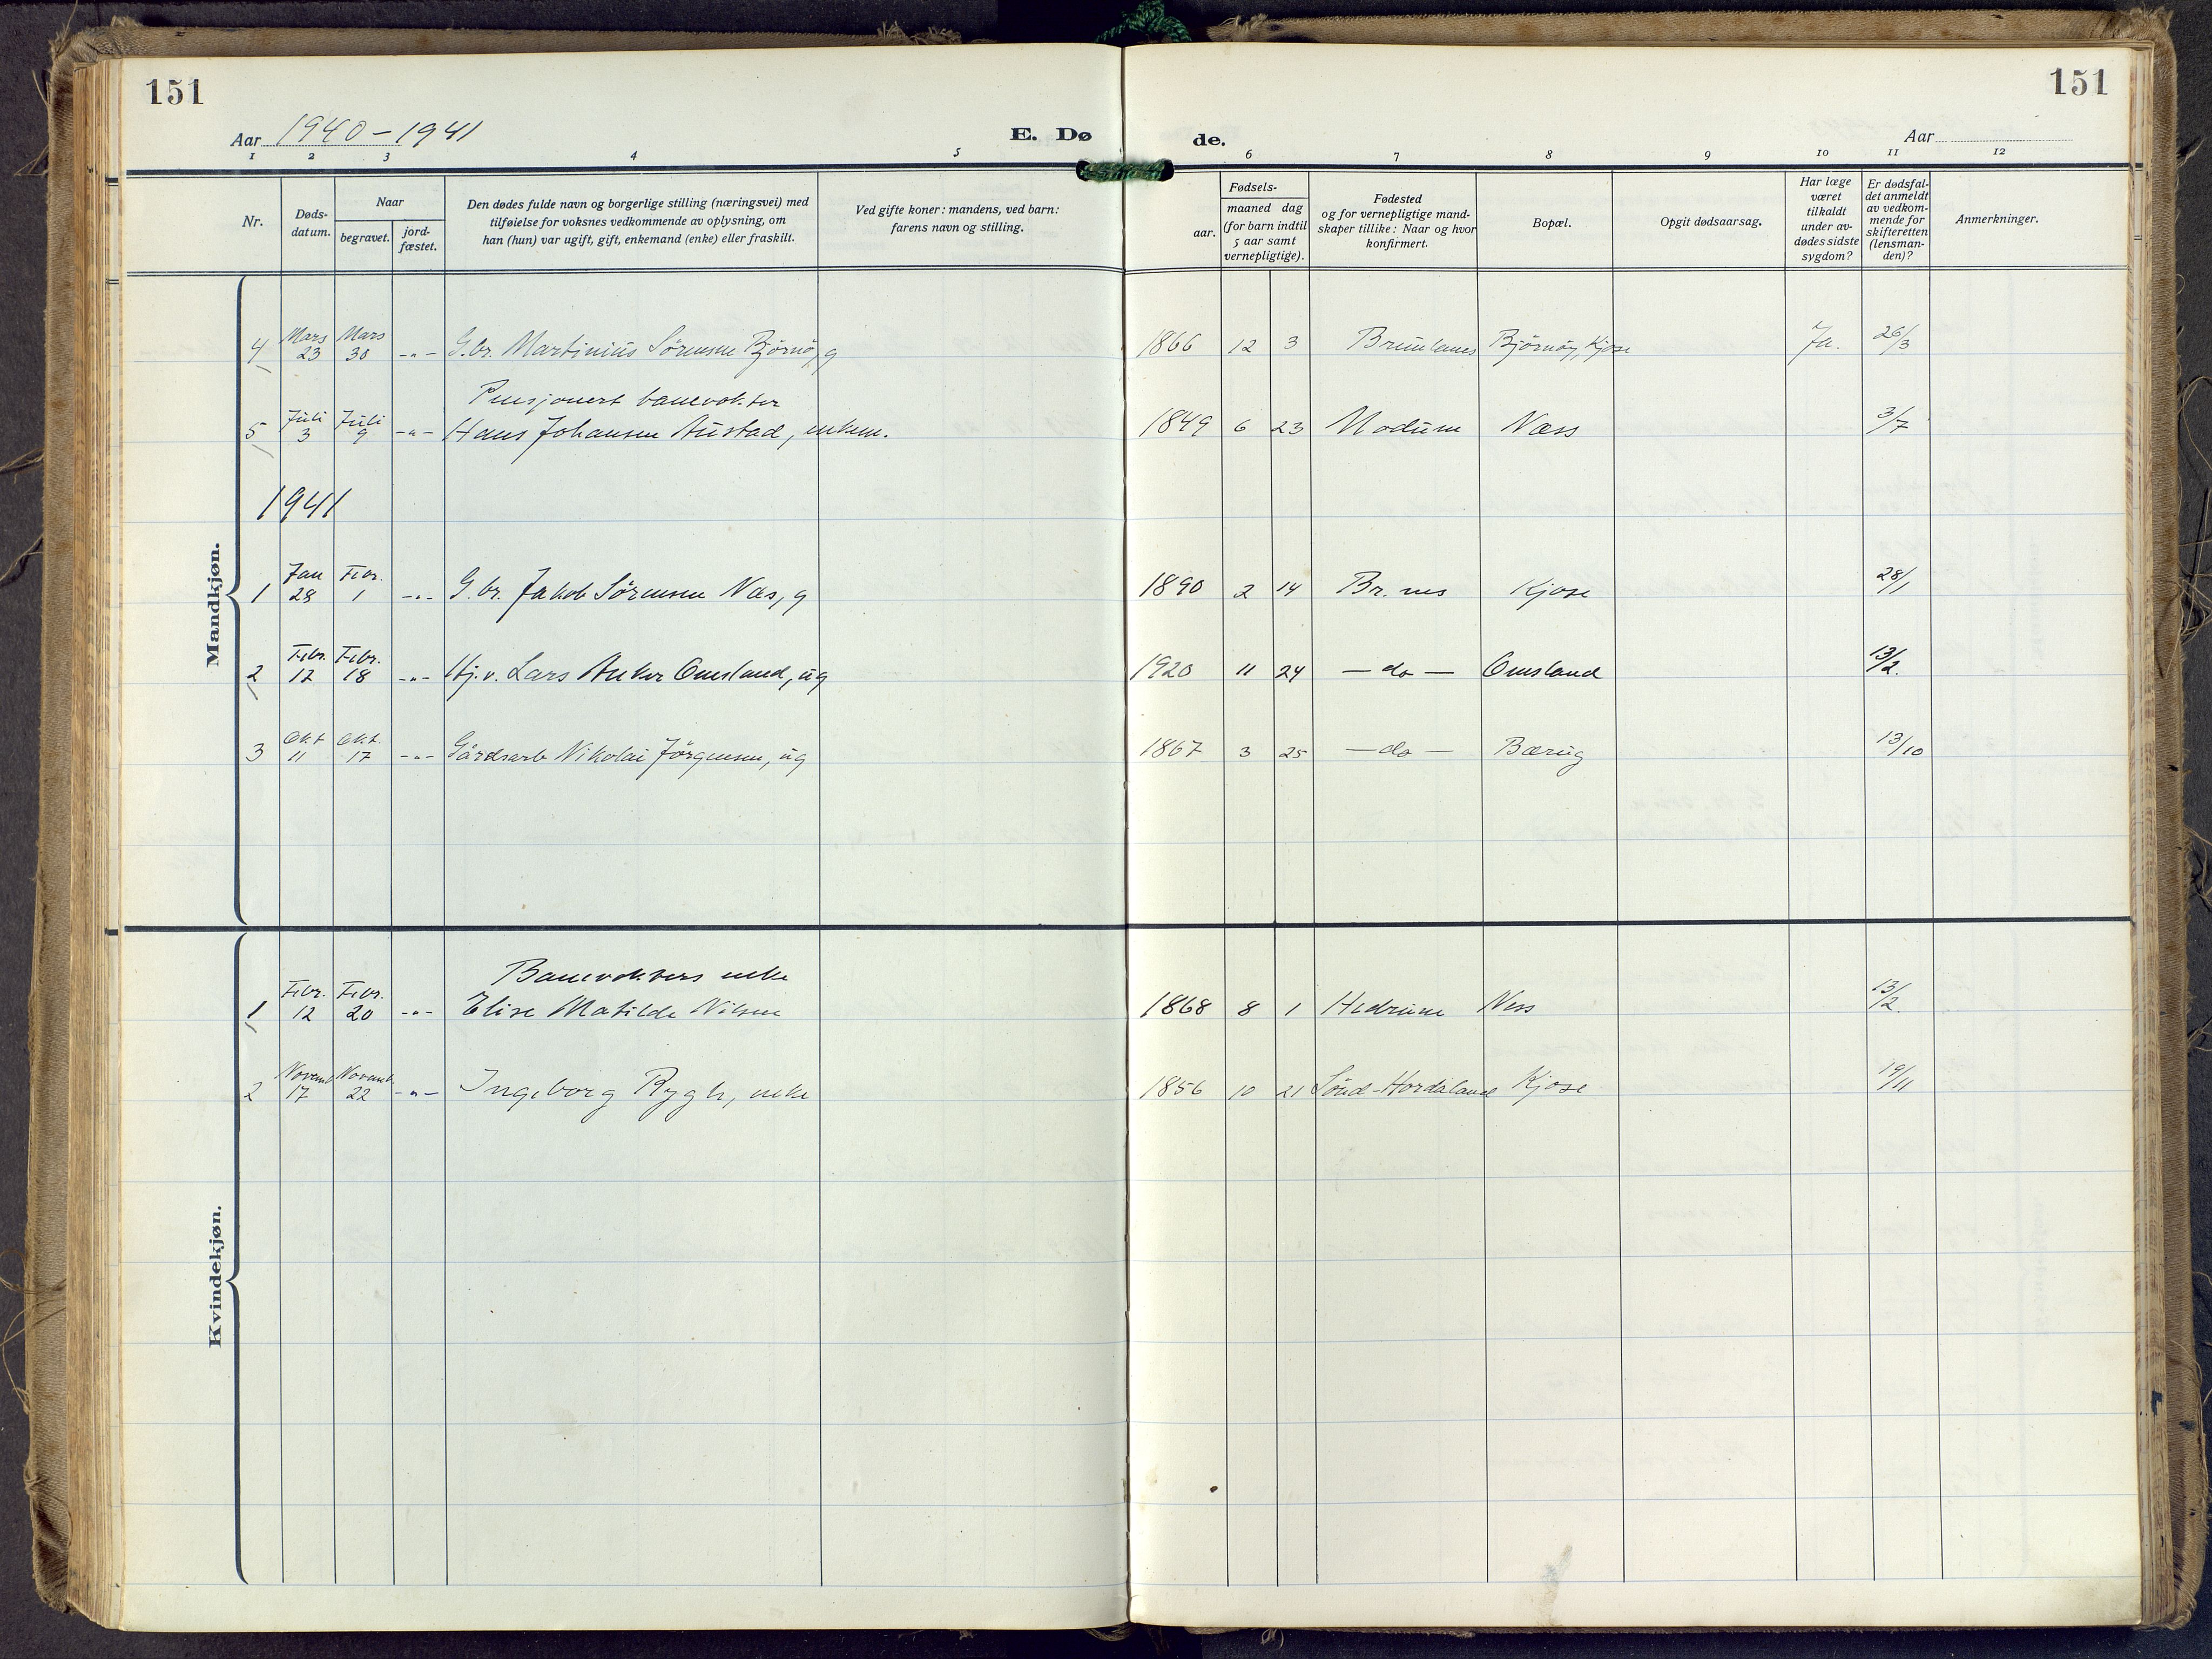 151
151
Aar 1940-1941
E. Dø
de.
Aar
1 2 3 4 5 6 7 8 9 10 11 12
Nr.
Døds-
datum.
Naar
begravet.
jord-
fæstet.
Den dødes fulde navn og borgerlige stilling (næringsvei) med
tilføielse for voksnes vedkommende av oplysning, om
han (hun) var ugift, gift, enkemand (enke) eller fraskilt.
Ved gifte koner: mandens, ved barn:
farens navn og stilling.
aar.
Fødsels-
maaned dag
(for barn indtil
5 aar samt
vernepligtige).
Fødested
og for vernepligtige mand-
skaper tillike: Naar og hvor
konfirmert.
Bopæl.
Opgit dødsaarsag.
Har læge
været
tilkaldt
under av-
dødes sidste
sygdom?
Er dødsfal-
det anmeldt
av vedkom-
mende for
skifteretten
(lensman-
den)?
Anmerkninger.
Mandkjøn.
Mars Mars
4 23 30 -"- G.br. Martinius Sørensen Bjørnø, g 1866 12 3 Brunlanes Bjørnøy, Kjose Ja. 26/3
Pensjonert banevokter
Juli Juli
5 3 9 -"- Hans Johansen Austad, enkem. 1849 6 23 Modum Næss 3/7
1941
Jan Febr.
1 28 1 -"- G.br. Jakob Sørensen Næs, g 1890 2 14 Br.nes Kjose 28/1
Febr. Febr.
2 12 18 -"- Hj.v. Lars Anker Omsland, ug 1920 11 24 -do- Omsland 13/2.
Okt Okt.
3 11 17 -"- Gårdsarb Nikolai Jørgensen, ug 1867 3 25 -do- Bærug 13/10
Kvindekjøn.
Banevokters enke
Febr. Febr.
1 12 20 -"- Elise Matilde Nilsen 1868 8 1 Hedrum Ness 13/2.
Novemb Novemb
2 17 22 -"- Ingeborg Rygh, enke 1856 10 21 Sønd-Hordaland Kjose 19/11